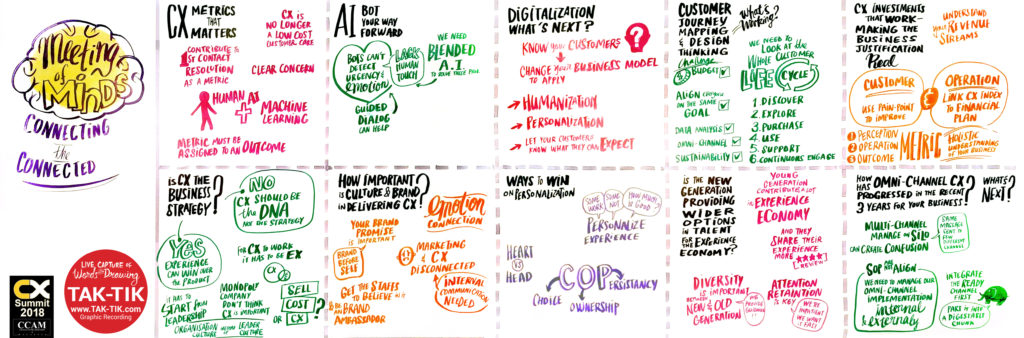 Meeting
of
Minds
CONNECTING
the
CONNECTED
CX METRICS
THAT
MATTERS
CX IS
NO LONGER
A LOW COST
CUSTOMER CARE
CONTRIBUTE TO
1ST CONTACT
RESOLUTION
AS A METRIC
CLEAR CONCERN
HUMAN + AI
MACHINE
LEARNING
METRIC MUST BE
ASSIGNED TO AN OUTCOME
AI BOT
YOUR WAY
FORWARD
BOTS CAN'T
DETECT
URGENCY &
emotion
LACKS
HUMAN
TOUCH
WE NEED
BLENDED
A.I
GUIDED
DIALOG
CAN HELP
DIGITALIZATION
WHAT'S NEXT?
KNOW YOUR CUSTOMERS
CHANGE YOUR BUSINESS MODEL
TO APPLY
HUMANIZATION
PERSONALIZATION
LET YOUR CUSTOMERS
KNOW WHAT THEY CAN EXPECT
CUSTOMER
JOURNEY
MAPPING
& DESIGN
THINKING
What's
Working?
Challenge
BUDGET
ALIGN EVERYONE
ON THE SAME
GOAL
DATA ANALYSIS
OMNI-CHANNEL
SUSTAINABILITY
WE NEED TO
LOOK AT THE
WHOLE CUSTOMER
LIFE CYCLE
1. DISCOVER
2. EXPLORE
3. PURCHASE
4. USE
5. SUPPORT
6. CONTINUOUS ENGAGE
CX INVESTMENTS
THAT WORK-
MAKING THE
BUSINESS
JUSTIFICATION
Real
UNDERSTAND
YOUR REVENUE
STREAMS
CUSTOMER
USE PAIN-POINT
TO IMPROVE
OPERATION
LINK CX INDEX
TO FINANCIAL
PLAN
1 PERCEPTION
2 OPERATION
3 OUTCOME
METRIC
HOLISTIC
UNDERSTANDING
OF YOUR BUSINESS
IS CX
THE
BUSINESS
STRATEGY?
NO
CX SHOULD BE
the DNA
NOT THE STRATEGY
YES
EXPERIENCE
CAN WIN OVER
THE PRODUCT
FOR CX TO WORK
IT HAS TO BE EX
CX
EX
IT HAS TO
START FROM
LEADERSHIP
ORGANISATION
CULTURE
LEADER
CULTURE
MONOPOLY
COMPANY
DON'T THINK
CX IS IMPORTANT
SELL
COST?
OR CX
HOW IMPORTANT
IS CULTURE & BRAND
IN DELIVERING CX?
emotion
CONNECTION
YOUR BRAND
PROMISE
IS IMPORTANT
BRAND
BEFORE
SELF
MARKETING
& CX
DISCONNECTED
GET THE STAFFS
TO BELIEVE
BRAND
AMBASSADOR
INTERNAL
COMMUNICATION
NEEDED
WAYS TO WIN
ON PERSONALIZATION
SOME
WORK
SOME
NOT
HOW MUCH
IS GOOD
PERSONALIZE
EXPERIENCE
HEART
VS
HEAD
COP
CHOICE
OWNERSHIP
PERSISTANCY
IS THE NEW
GENERATION
PROVIDING
WIDER
OPTIONS
IN TALENT
FOR EXPERIENCE
ECONOMY?
YOUNG
GENERATION
CONTRIBUTE A LOT
IN EXPERIENCE
ECONOMY
AND THEY
SHARE THEIR
EXPERIENCE
MORE
REVIEW
DIVERSITY
IS IMPORTANT
BETWEEN
NEW & OLD
GENERATION
ATTENTION
RETAINTION
IS KEY
WE'RE
IMPATIENT
WE WANT
IT FAST
HOW HAS OMNI-CHANNEL CX
PROGRESSED IN THE RECENT
3 YEARS FOR YOUR BUSINESS?
WHAT'S
NEXT?
MULTI-CHANNEL
MANAGE IN SILO
CAN CREATE CONFUSION
SAME
MESSAGE
SENT TO
FEW
DIFFERENT
CHANNEL
SOP MAY NOT ALIGN
WE NEED TO MANAGE OUR
OMNI-CHANNEL
IMPLEMENTATION
internal
& externally
INTEGRATE
THE READY
CHANNEL
FIRST
PART IT INTO
A DIGESTABLE
CHUNK
CX
Summit
2018
CCAM
LIVE CAPTURE OF
Words into Drawing
TAK-TIK
www.TAK-TIK.com
Graphic Recording